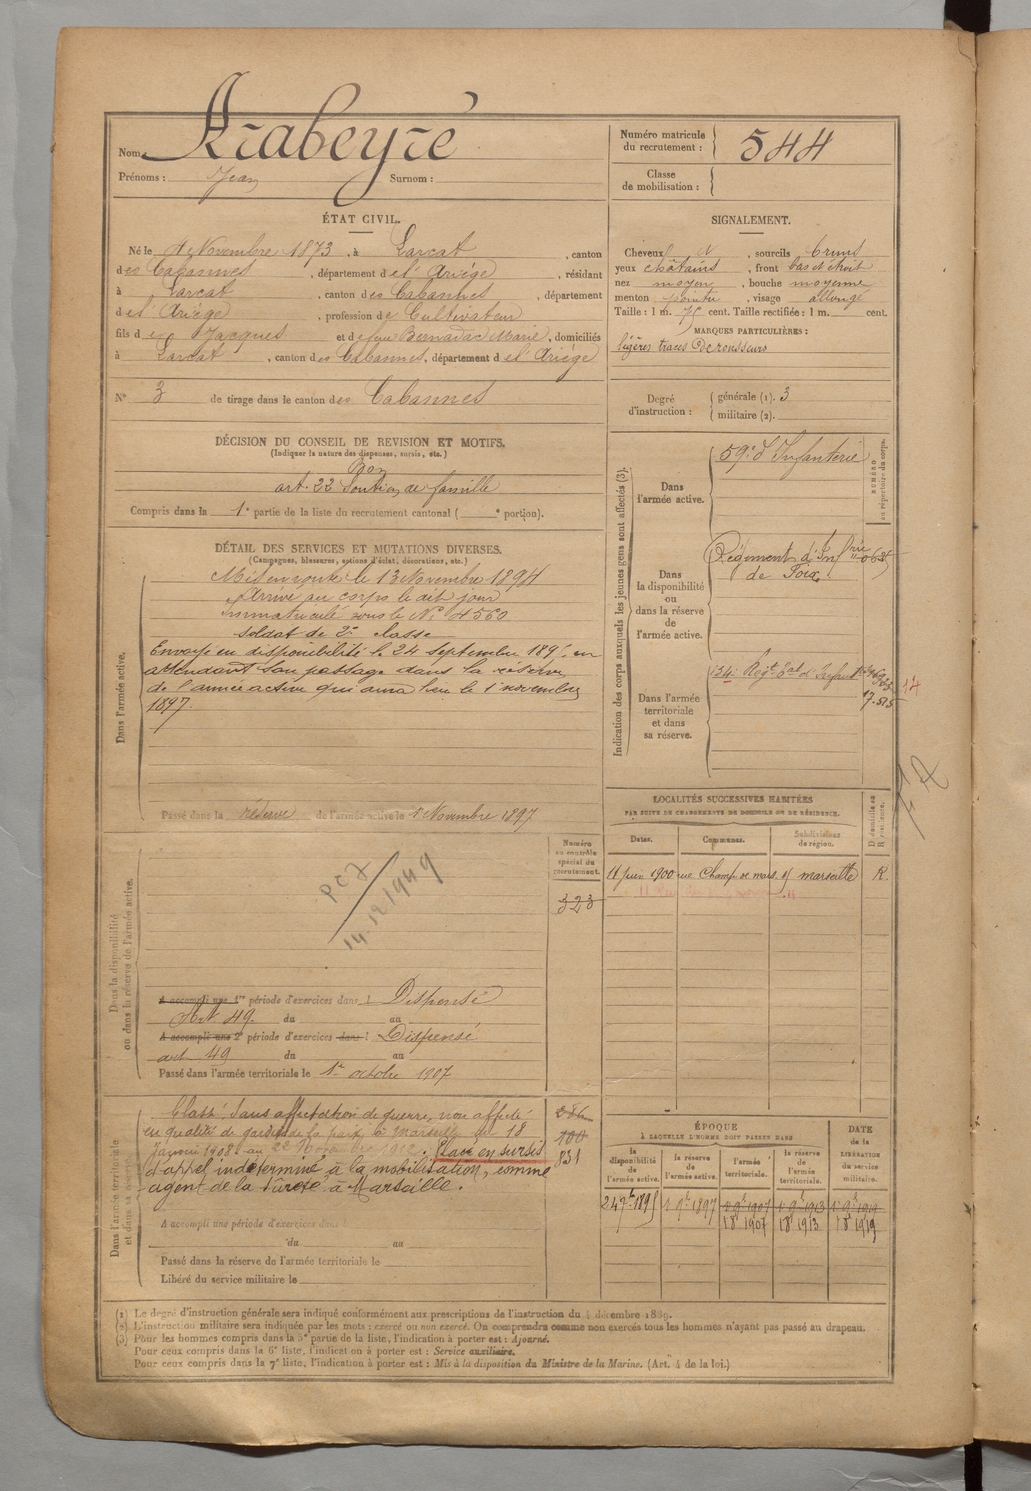 Nom : Arabeyre
Prénoms : Jean Surnom :
Numéro matricule du recrutement : 544
Classe de mobilisation :
ÉTAT CIVIL.
Né le Novembre 1873, à Larcat, canton
des Cabannes, département de l'Ariège, résidant
à Larcat, canton des Cabannes, département
de l'Ariège, profession de Cultivateur
fils de Jacques et de feue Bernadac Marie, domiciliés
à Larcat, canton des Cabannes, département de l'Ariège
N° 3 de tirage dans le canton des Cabannes
SIGNALEMENT.
Cheveux, sourcils bruns
yeux châtains, front bas et étroit
nez moyen, bouche moyenne
menton pointu, visage allongé
Taille : 1 m. 75 cent. Taille rectifiée : 1 m. cent.
MARQUES PARTICULIÈRES :
légères traces de rousseurs
Degré d'instruction : générale (1). 3
militaire (2).
DÉCISION DU CONSEIL DE REVISION ET MOTIFS.
(Indiquer la nature des dispenses, sursis, etc.)
Bon
art. 22 Soutien de famille
Compris dans la 1e partie de la liste du recrutement cantonal ( e portion).
DÉTAIL DES SERVICES ET MUTATIONS DIVERSES.
(Campagnes, blessures, actions d'éclat, décorations, etc.)
Dans l'armée active.
Mis en route le 13 Novembre 1894
Arrivé au corps le dit jour
Immatriculé sous le N° 4560
Soldat de 2e classe
Envoyé en disponibilité le 24 septembre 1895 en
attendant son passage dans la réserve
de l'armée active qui aura lieu le 1 novembre
1897
Passé dans la réserve de l'armée active le 1 Novembre 1897
Indication des corps auxquels les jeunes gens sont affectés (3).
NUMÉRO au répertoire du corps.
Dans l'armée active.
59e d'Infanterie
Dans la disponibilité ou dans la réserve de l'armée active.
Régiment d'Inf
de Foix
Dans l'armée territoriale et dans sa réserve.
134e Regt Inf
17.515
LOCALITÉS SUCCESSIVES HABITÉES
PAR SUITE DE CHANGEMENTS DE DOMICILE OU DE RÉSIDENCE.
Dates. Communes. Subdivisions de région. Domicile ou Résidence.
11 juin 1900 rue Champ de mars marseille R.
Dans la disponibilité ou dans la réserve de l'armée active.
Numéro au contrôle spécial du recrutement.
323
14.12/1949
A accompli une 1re période d'exercices dans l Dispensé
Art 49. du au
A accompli une 2e période d'exercices dans l Dispensé
art 49 du au
Passé dans l'armée territoriale le 1er octobre 1907
Dans l'armée territoriale et dans sa réserve.
Classé Sans affectation de guerre, non affecté
en qualité de gardien de la paix à Marseille du 18
Janvier 1908 au . Placé en sursis
d'appel indéterminé à la mobilisation, comme
agent de la Sûreté à Marseille.
100
831
A accompli une période d'exercices dans l
du au
Passé dans la réserve de l'armée territoriale le
Libéré du service militaire le
ÉPOQUE
À LAQUELLE L'HOMME DOIT PASSER DANS
DATE de la LIBÉRATION du service militaire.
la disponibilité de l'armée active. la réserve de l'armée active. l'armée territoriale. la réserve de l'armée territoriale.
24 7b 1895 1 9b 1897 1 9b 1907 1 9b 1913 1 9b 1919
1 8b 1907 1 8b 1913 1 8b 1919
(1) Le degré d'instruction générale sera indiqué conformément aux prescriptions de l'instruction du 4 décembre 1889.
(2) L'instruction militaire sera indiquée par les mots : exercé ou non exercé. On comprendra comme non exercés tous les hommes n'ayant pas passé au drapeau.
(3) Pour les hommes compris dans la 5e partie de la liste, l'indication à porter est : Ajourné.
Pour ceux compris dans la 6e liste, l'indication à porter est : Service auxiliaire.
Pour ceux compris dans la 7e liste, l'indication à porter est : Mis à la disposition du Ministre de la Marine. (Art. 4 de la loi.)